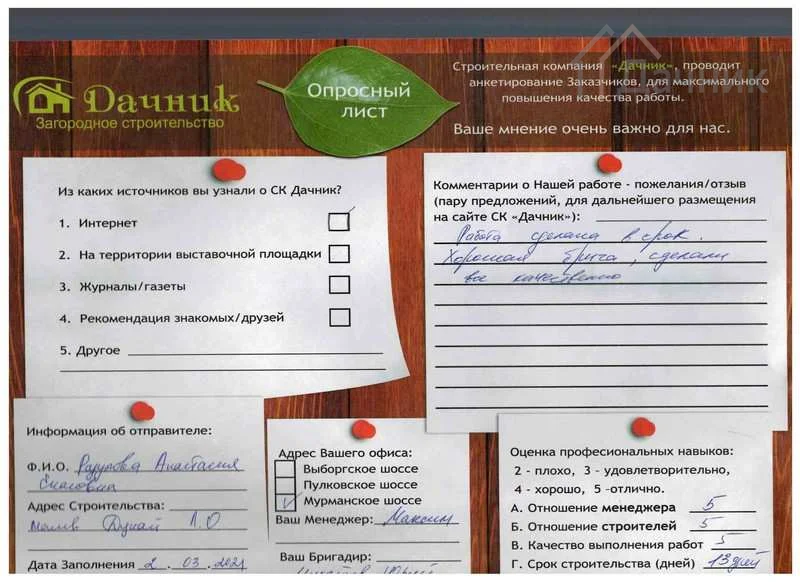 Дачник
Загородное строительство
Опросный
лист
Строительная компания «Дачник», проводит
анкетирование Заказчиков, для максимального
повышения качества работы.
Ваше мнение очень важно для нас.
Из каких источников вы узнали о СК Дачник?
1. Интернет
2. На территории выставочной площадки
3. Журналы/газеты
4. Рекомендация знакомых/друзей
5. Другое
Комментарии о Нашей работе - пожелания/отзыв
(пару предложений, для дальнейшего размещения
на сайте СК «Дачник»):
Работа сделана в срок.
Хорошая , сделали
все качественно
Информация об отправителе:
Ф.И.О. Анастасия
Адрес Строительства:
Л.О
Дата Заполнения 2 . 03 .2021
Адрес Вашего офиса:
Выборгское шоссе
Пулковское шоссе
Мурманское шоссе
Ваш Менеджер: Максим
Ваш Бригадир:
Юрий
Оценка професиональных навыков:
2 - плохо, 3 - удовлетворительно,
4 - хорошо, 5 -отлично.
А. Отношение менеджера 5
Б. Отношение строителей 5
В. Качество выполнения работ 5
Г. Срок строительства (дней) 13 дней